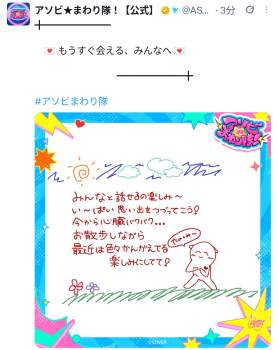 アソビ★まわり隊！【公式】 @AS... ・3分
💌 もうすぐ会える、みんなへ 💌
#アソビまわり隊
アソビ
まわり隊
みんなと話せるの楽しみ〜
い〜っぱい思い出をつづってこう？
今から心臓バクバク...
お散歩しながら
最近は色々かんがえてる
楽しみにしてて？
©COVER